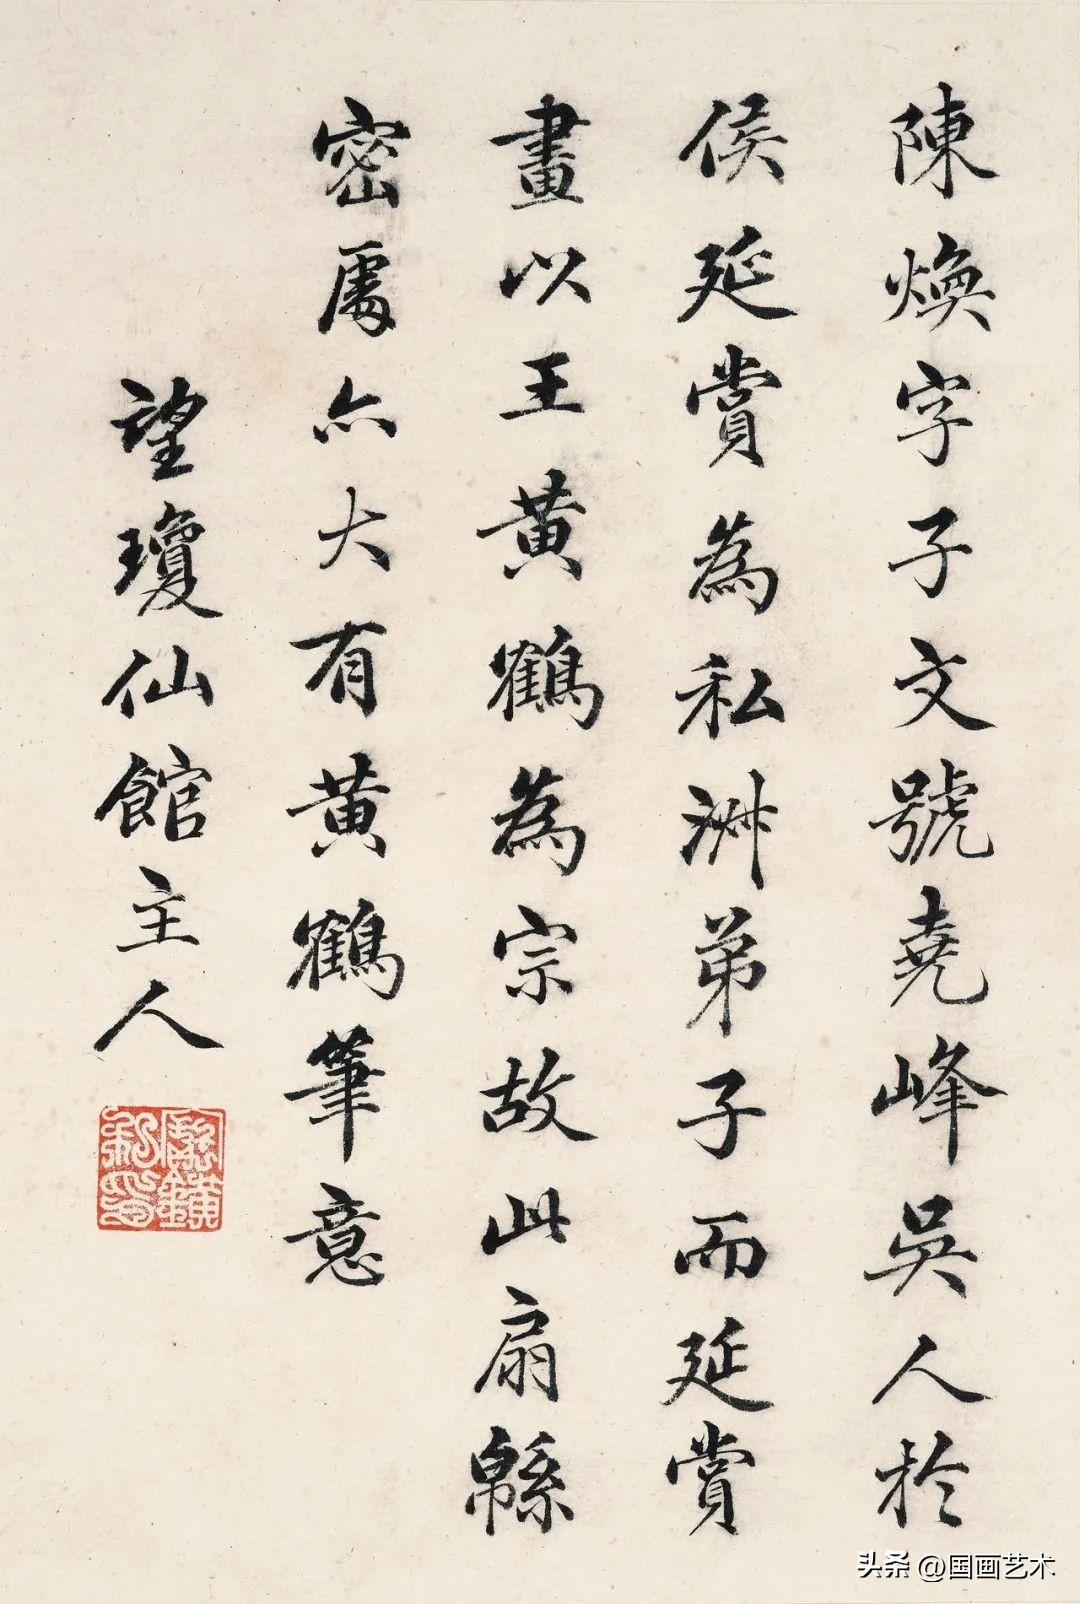 陳煥字子文號堯峰吳人於
侯延賞為私淑弟子而延賞
畫以王黃鶴為宗故此扇緜
密處亦大有黃鶴筆意
望瓊仙館主人
头条 @国画艺术